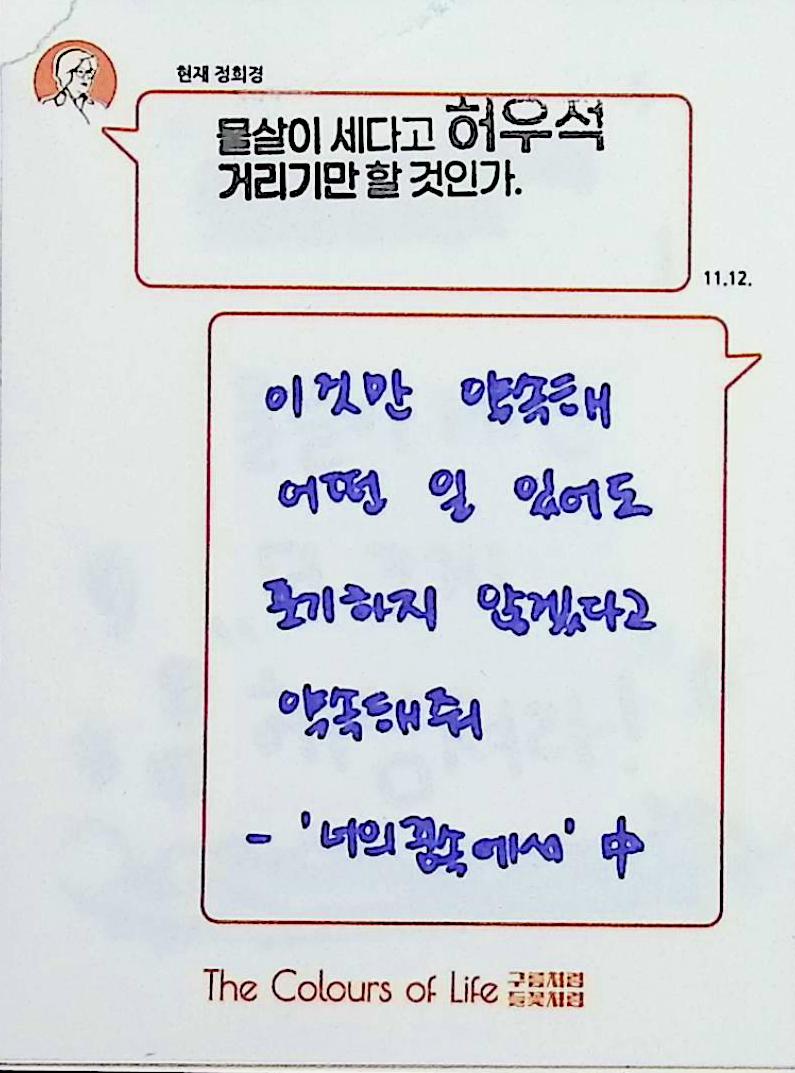 현재 정희경
물살이 세다고 허우석
거리기만 할 것인가.
11.12.
이것만 약속해
어떤 일 있어도
포기하지 않겠다고
약속해줘
- '너의 꿈속에서' 中
The Colours of Life 구름처럼
들꽃처럼